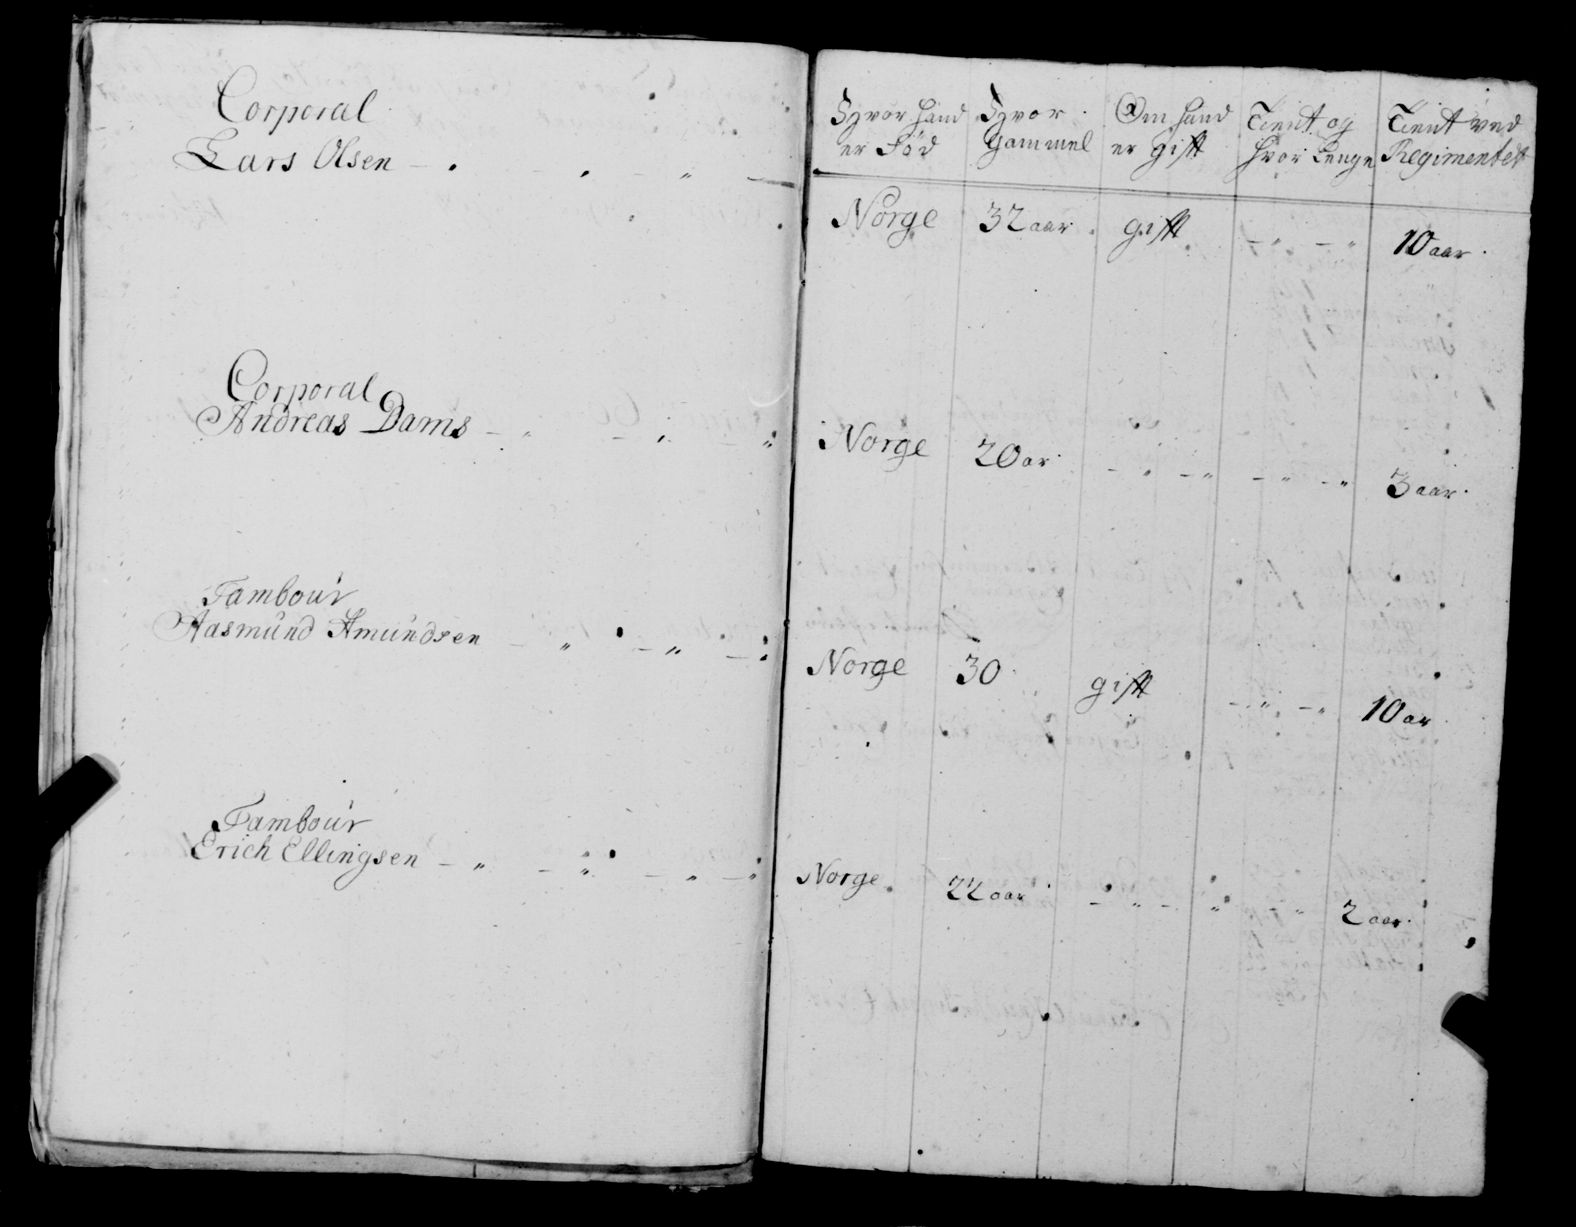 Corporal
Lars Olsen
Corporal
Andreas Dams
Tambour
Aasmund Amundsen
Tambour
Erich Ellingsen
Hvor hand er Fød
Hvor gammel
Om hand er gift
Tient og hvor Lenge
Tient ved Regimentet
Norge 32 aar gifft 10 aar
Norge 20 ar 3 aar
Norge 30 gifft 10 ar
Norge 22 aar 2 aar